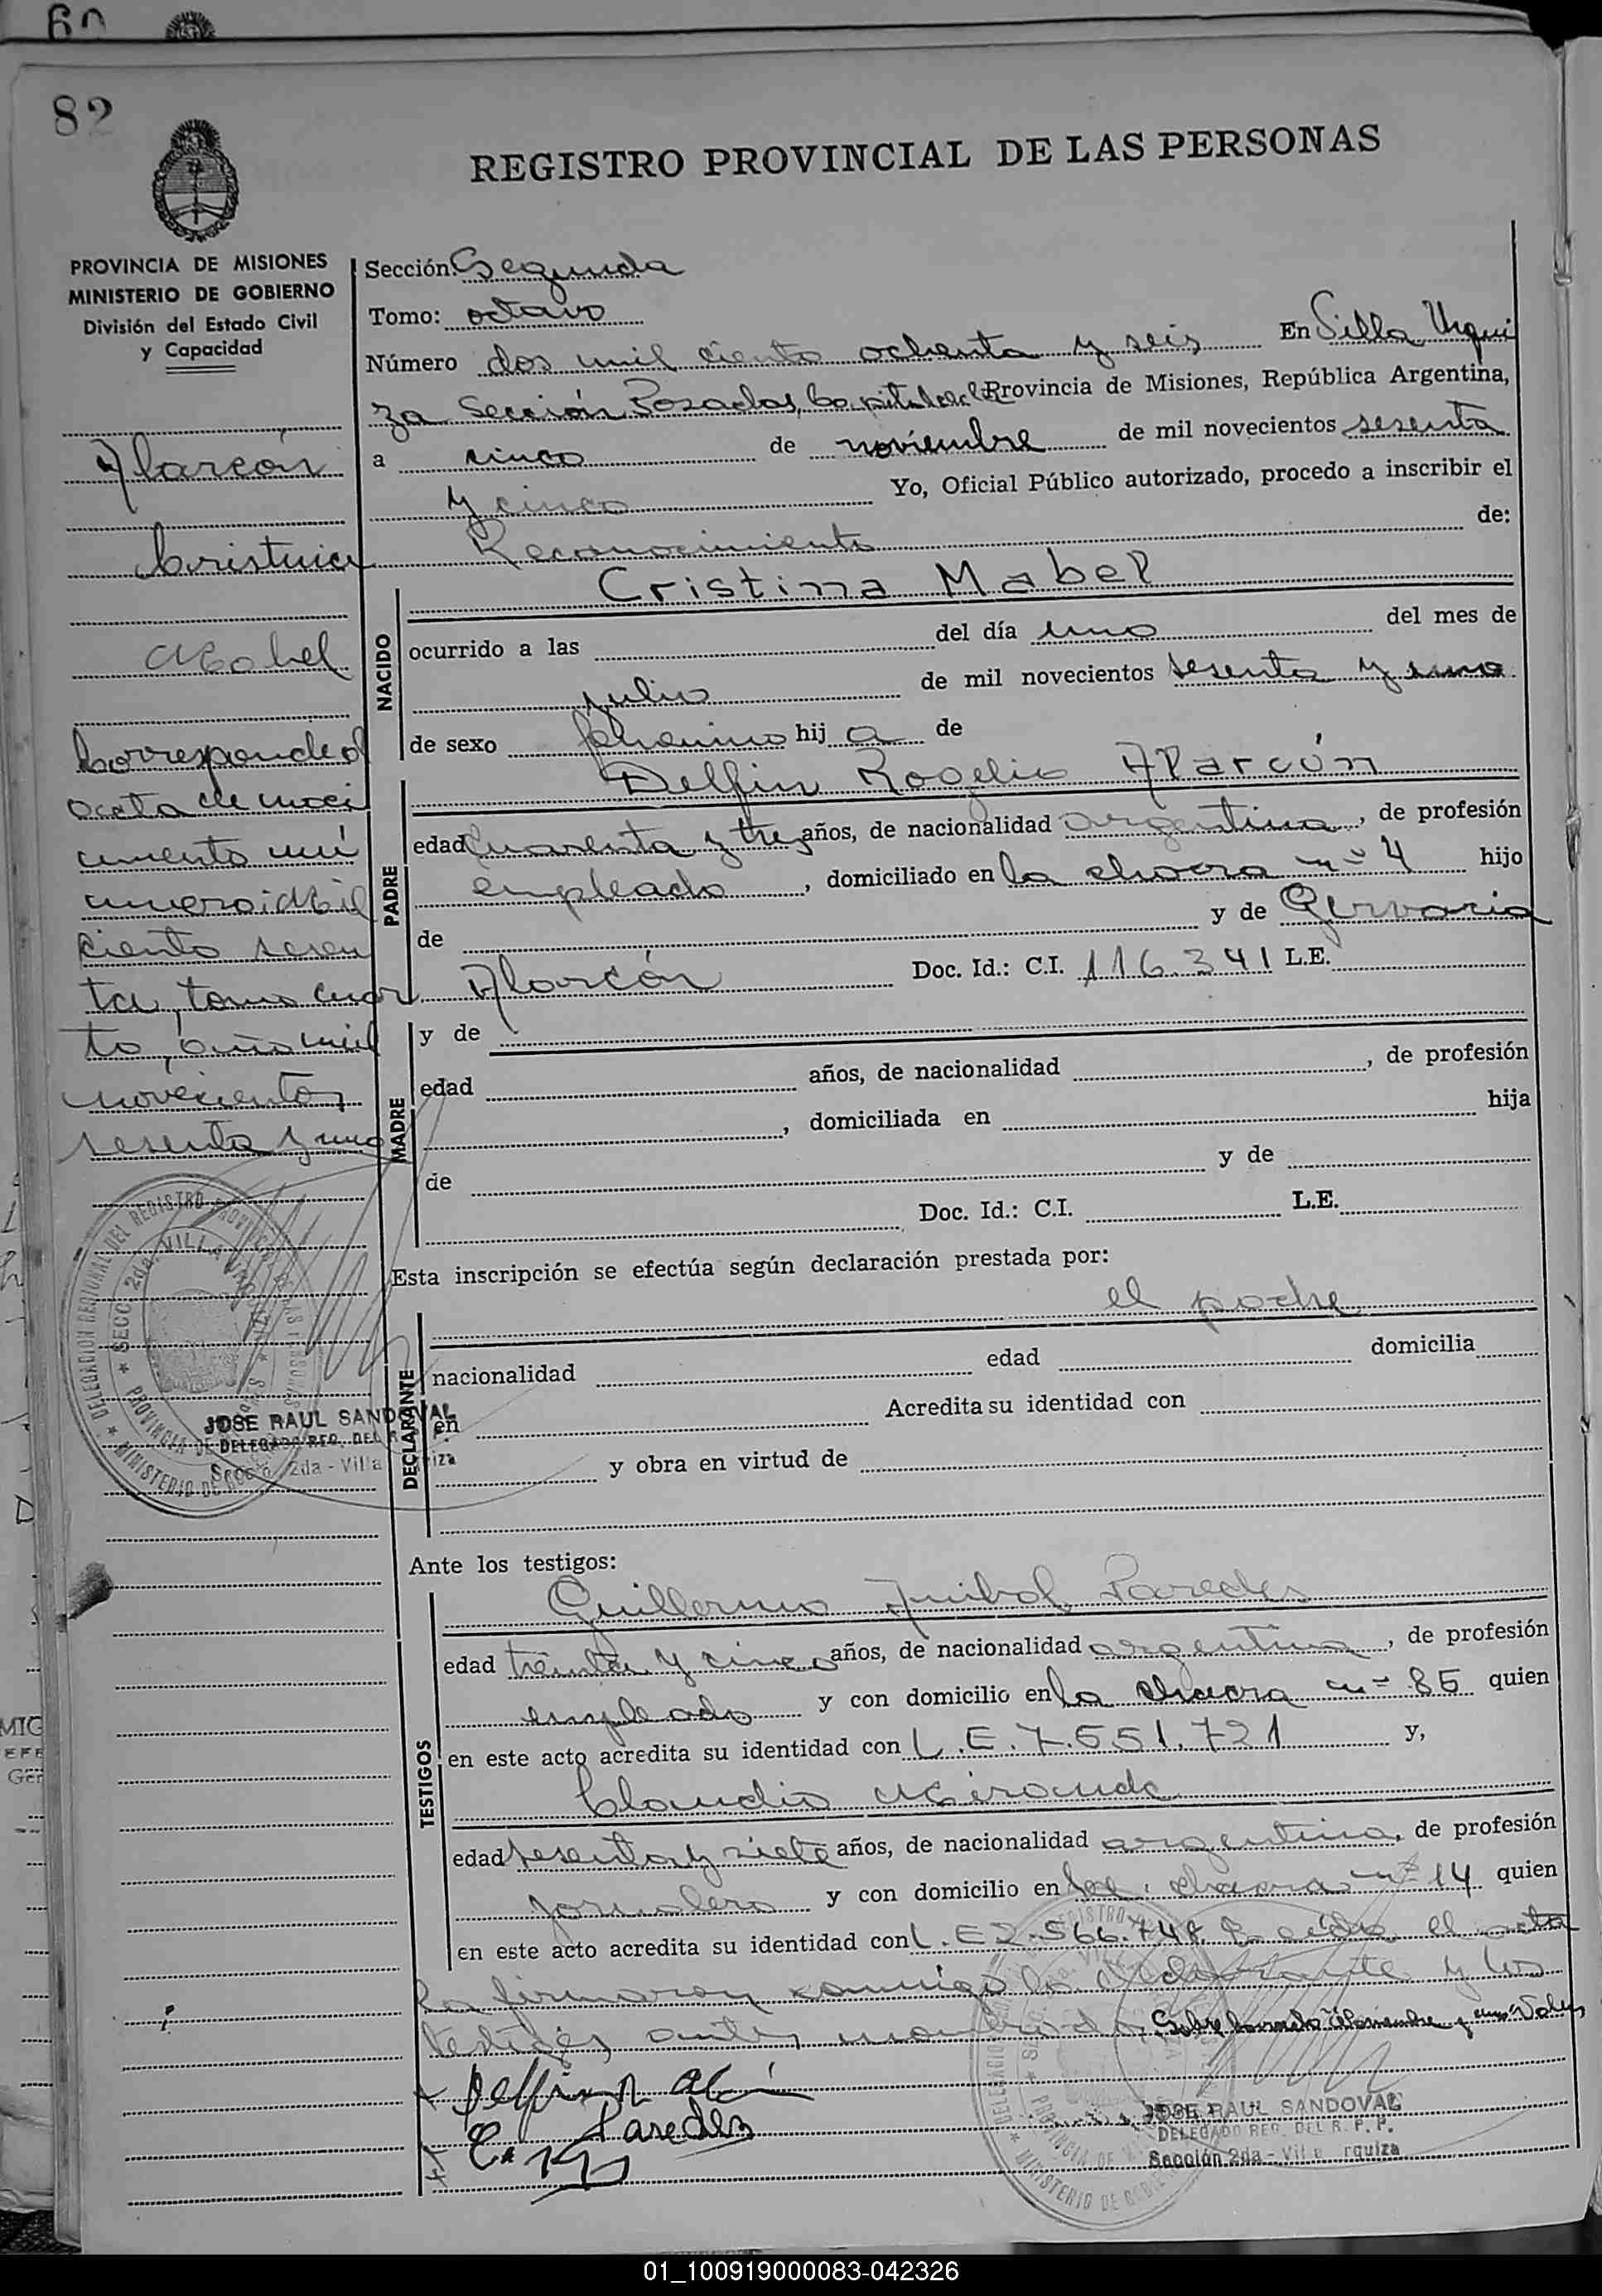 60
82
REGISTRO PROVINCIAL DE LAS PERSONAS
PROVINCIA DE MISIONES
MINISTERIO DE GOBIERNO
División del Estado Civil
y Capacidad
Sección: Segunda
Tomo: octavo
Número dos mil ciento ochenta y seis En Villa Urqui
za Sección Posadas, Capital de la Provincia de Misiones, República Argentina,
a cinco de noviembre de mil novecientos sesenta
y cinco Yo, Oficial Público autorizado, procedo a inscribir el
Reconocimiento de:
Alarcón
Cristina
Mabel
Corresponde al
acta de naci
miento nú
mero: Mil
ciento sesen
ta, tomo cuar
to, año mil
novecientos
sesenta y uno
NACIDO
Cristina Mabel
ocurrido a las del día uno del mes de
julio de mil novecientos sesenta y uno
de sexo femenino hij a de
PADRE
Delfin Rogelio Alarcón
edad cuarenta y tres años, de nacionalidad argentina, de profesión
empleado, domiciliado en la chacra nº 4 hijo
de y de Gervacia
Alarcón Doc. Id.: C.I. 116.341 L.E.
MADRE
y de
edad años, de nacionalidad , de profesión
, domiciliada en hija
de y de
Doc. Id.: C.I. L.E.
Esta inscripción se efectúa según declaración prestada por:
DECLARANTE
el padre
nacionalidad edad domicilia
en Acredita su identidad con
y obra en virtud de
DELEGACION REGIONAL DEL REGISTRO PROVINCIAL DE LAS PERSONAS
SECC. 2da. VILLA URQUIZA
PROVINCIA DE MISIONES
MINISTERIO DE GOBIERNO
JOSE RAUL SANDOVAL
DELEGADO REG. DEL R.
Sección 2da - Villa Urquiza
Ante los testigos:
TESTIGOS
Guillermo Anibal Paredes
edad treinta y cinco años, de nacionalidad argentina, de profesión
empleado y con domicilio en la chacra nº 85 quien
en este acto acredita su identidad con L.E. 7.551.721 y,
Claudio Miranda
edad sesenta y siete años, de nacionalidad argentina, de profesión
jornalero y con domicilio en la chacra nº 14 quien
en este acto acredita su identidad con L.E 2.566.748. Leída el acta
la firmaron conmigo la declarante y los
testigos antes nombrados. Sobre borrado "Noviembre y uno" Valen
Delfin R Al
Paredes
JOSE RAUL SANDOVAL
DELEGADO REG. DEL R. P. P.
Sección 2da - Villa Urquiza
01_100919000083-042326